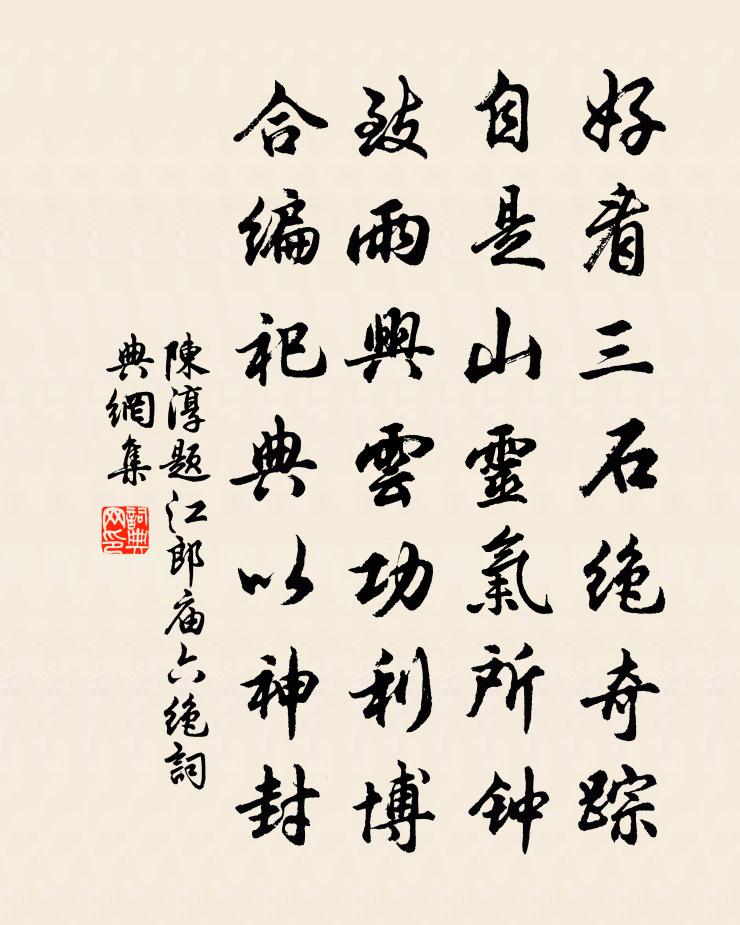 好看三石绝奇踪
自是山靈氣所钟
致雨興雲功利博
合编祀典以神封
陳淳题江郎庙六绝詞
典網集
詞典网印